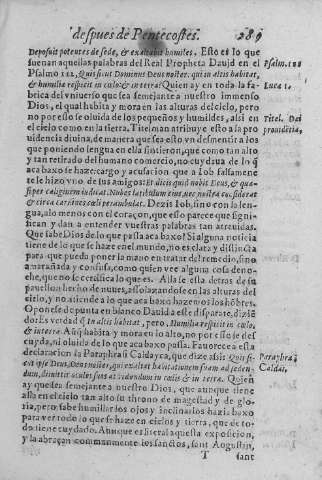 despues de Pentecostes. 289
Deposuit potentes de sede, & exaltauit humiles. Esto es lo que
suenan aquellas palabras del Real Propheta Dauid en el
Psalmo 112, Quis sicut Dominus Deus noster, qui in altis habitat,
& humilia respicit in cælo & in terra? Quien ay en toda la fa
brica del vniuerso que sea semejante a nuestro immenso
Dios, el qual habita y mora en las alturas del cielo, pero
no por esso se oluida de los pequeños y humildes, assi en
el cielo como en la tierra, Titelman atribuye esto a la pro
uidencia diuina, de manera que sea esto vn desmentir a los
que poniendo lengua en ella sintieron, que como tan alto
y tan retirado del humano comercio, no cuydaua de lo q̃
aca baxo se haze: cargo y acusacion que a Iob falsamen
te le hizo vno de sus amigos: Et dicis quid nouit Deus, & qua
si per caliginem iudicat. Nubes latibulum eius, nec nostra cõsiderat
& circa cardines cæli perambulat. Dezis Iob, sino con la len
gua, alo menos con el coraçon, que esso parece que signi-
fican y dan a entender vuestras palabras tan atreuidas.
Que sabe Dios de lo que passa aca baxo? Si alguna noticia
tiene de lo que se haze en el mundo, no es clara y distincta
para que puedo poner la mano en tratar del remedio, sino
amarañada y confusa, como quien vee alguna cosa de no-
che, que no se certifica lo que es. Alla se esta detras de su
pauellon hecho de nuues, assolazandose en las alturas del
cielo, y no atiende a lo que aca baxo hazen os los hõbres.
Oponese de punta en blanco Dauid a este disparate, diziẽ
do: Es verdad q̃ In altis habitat, pero, Humilia respicit in cælo,
& in terra. Aunq̃ habita y mora en lo alto, no por esso se des
cuyda, ni oluida de lo que aca baxo passa. Fauorece a esta
declaracion la Paraphrasi Caldayca, que dize assi: Quis si
cut ipse Deus, Deus noster, qui exaltat habitationem suam ad seden-
dum, dimittit oculos suos ad videndum in cælis & in terra. Quien
ay que sea semejante a nuestro Dios, que aunque tiene
assa en el cielo tan alto su throno de magestad y de glo-
ria, pero sabe humillar los ojos y inclinarlos hazia baxo
para ver todo lo que se haze en cielos y tierra, que de to-
do tiene cuydado. Aunque es literal aquesta exposicion,
y la abraçan communmente los sanctos, sant Augustin,
T sant
Psalm. 112
Luca 1.
Titel. Da
prouiditia.
Paraphra.
Caldai.